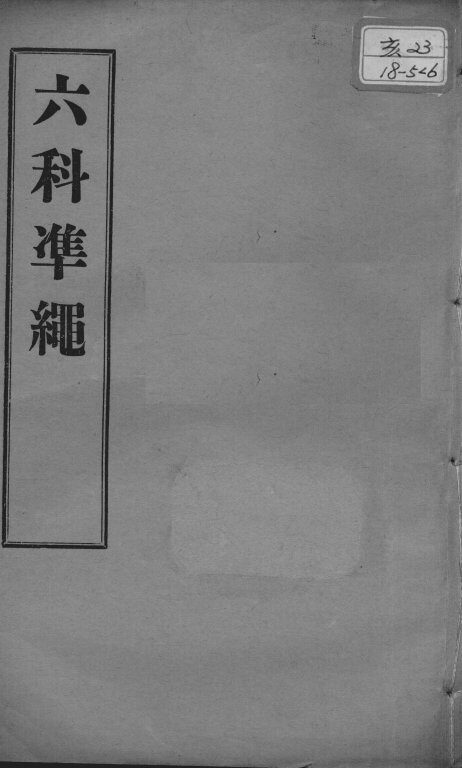 六科準繩
亥23
18-546